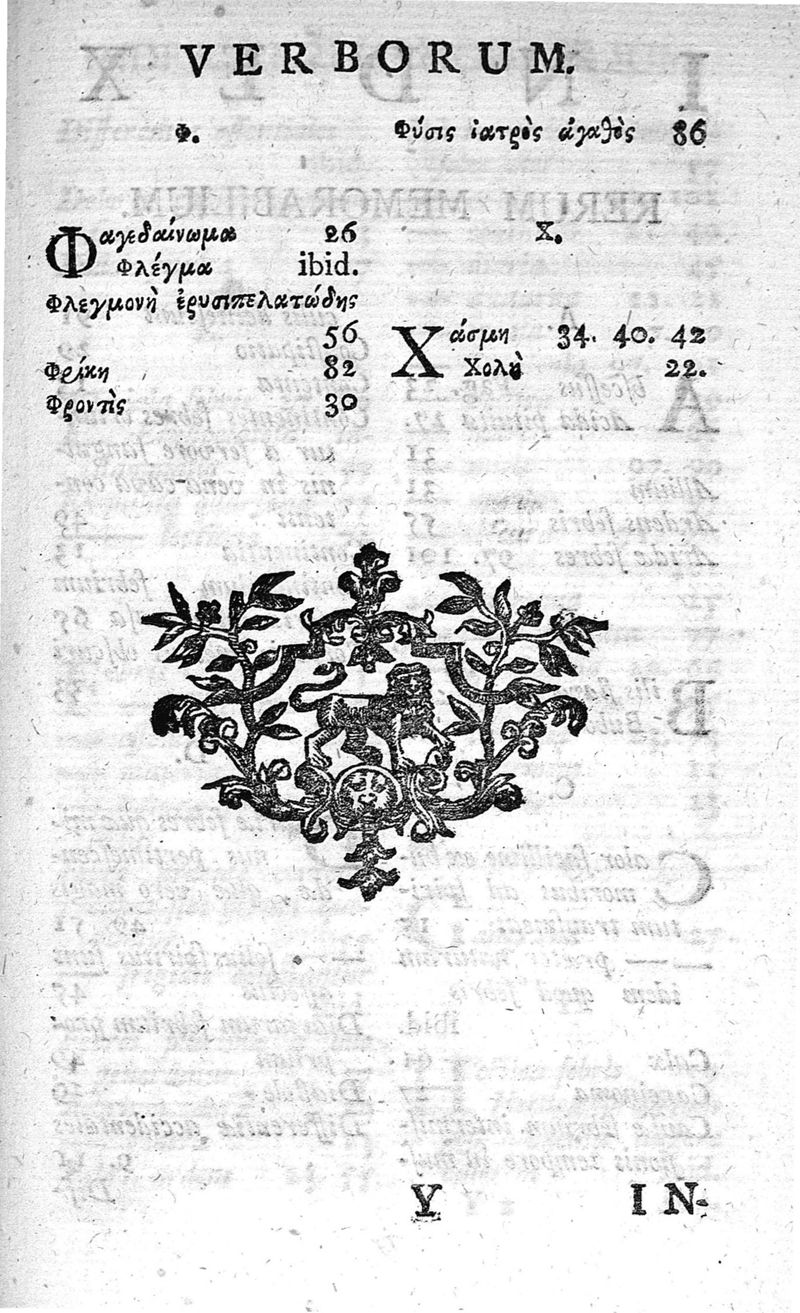 VERBORUM.
Φ.
Φαγεδαίνωμα 26
Φλέγμα ibid.
Φλεγμονὴ ἐρυσιπελατώδης
56
Φρίκη 82
Φροντὶς 30
Φύσις ἰατρὸς ἀγαθὸς 86
X.
Χάσμη 34. 40. 42
Χολὴ 22.
V IN-